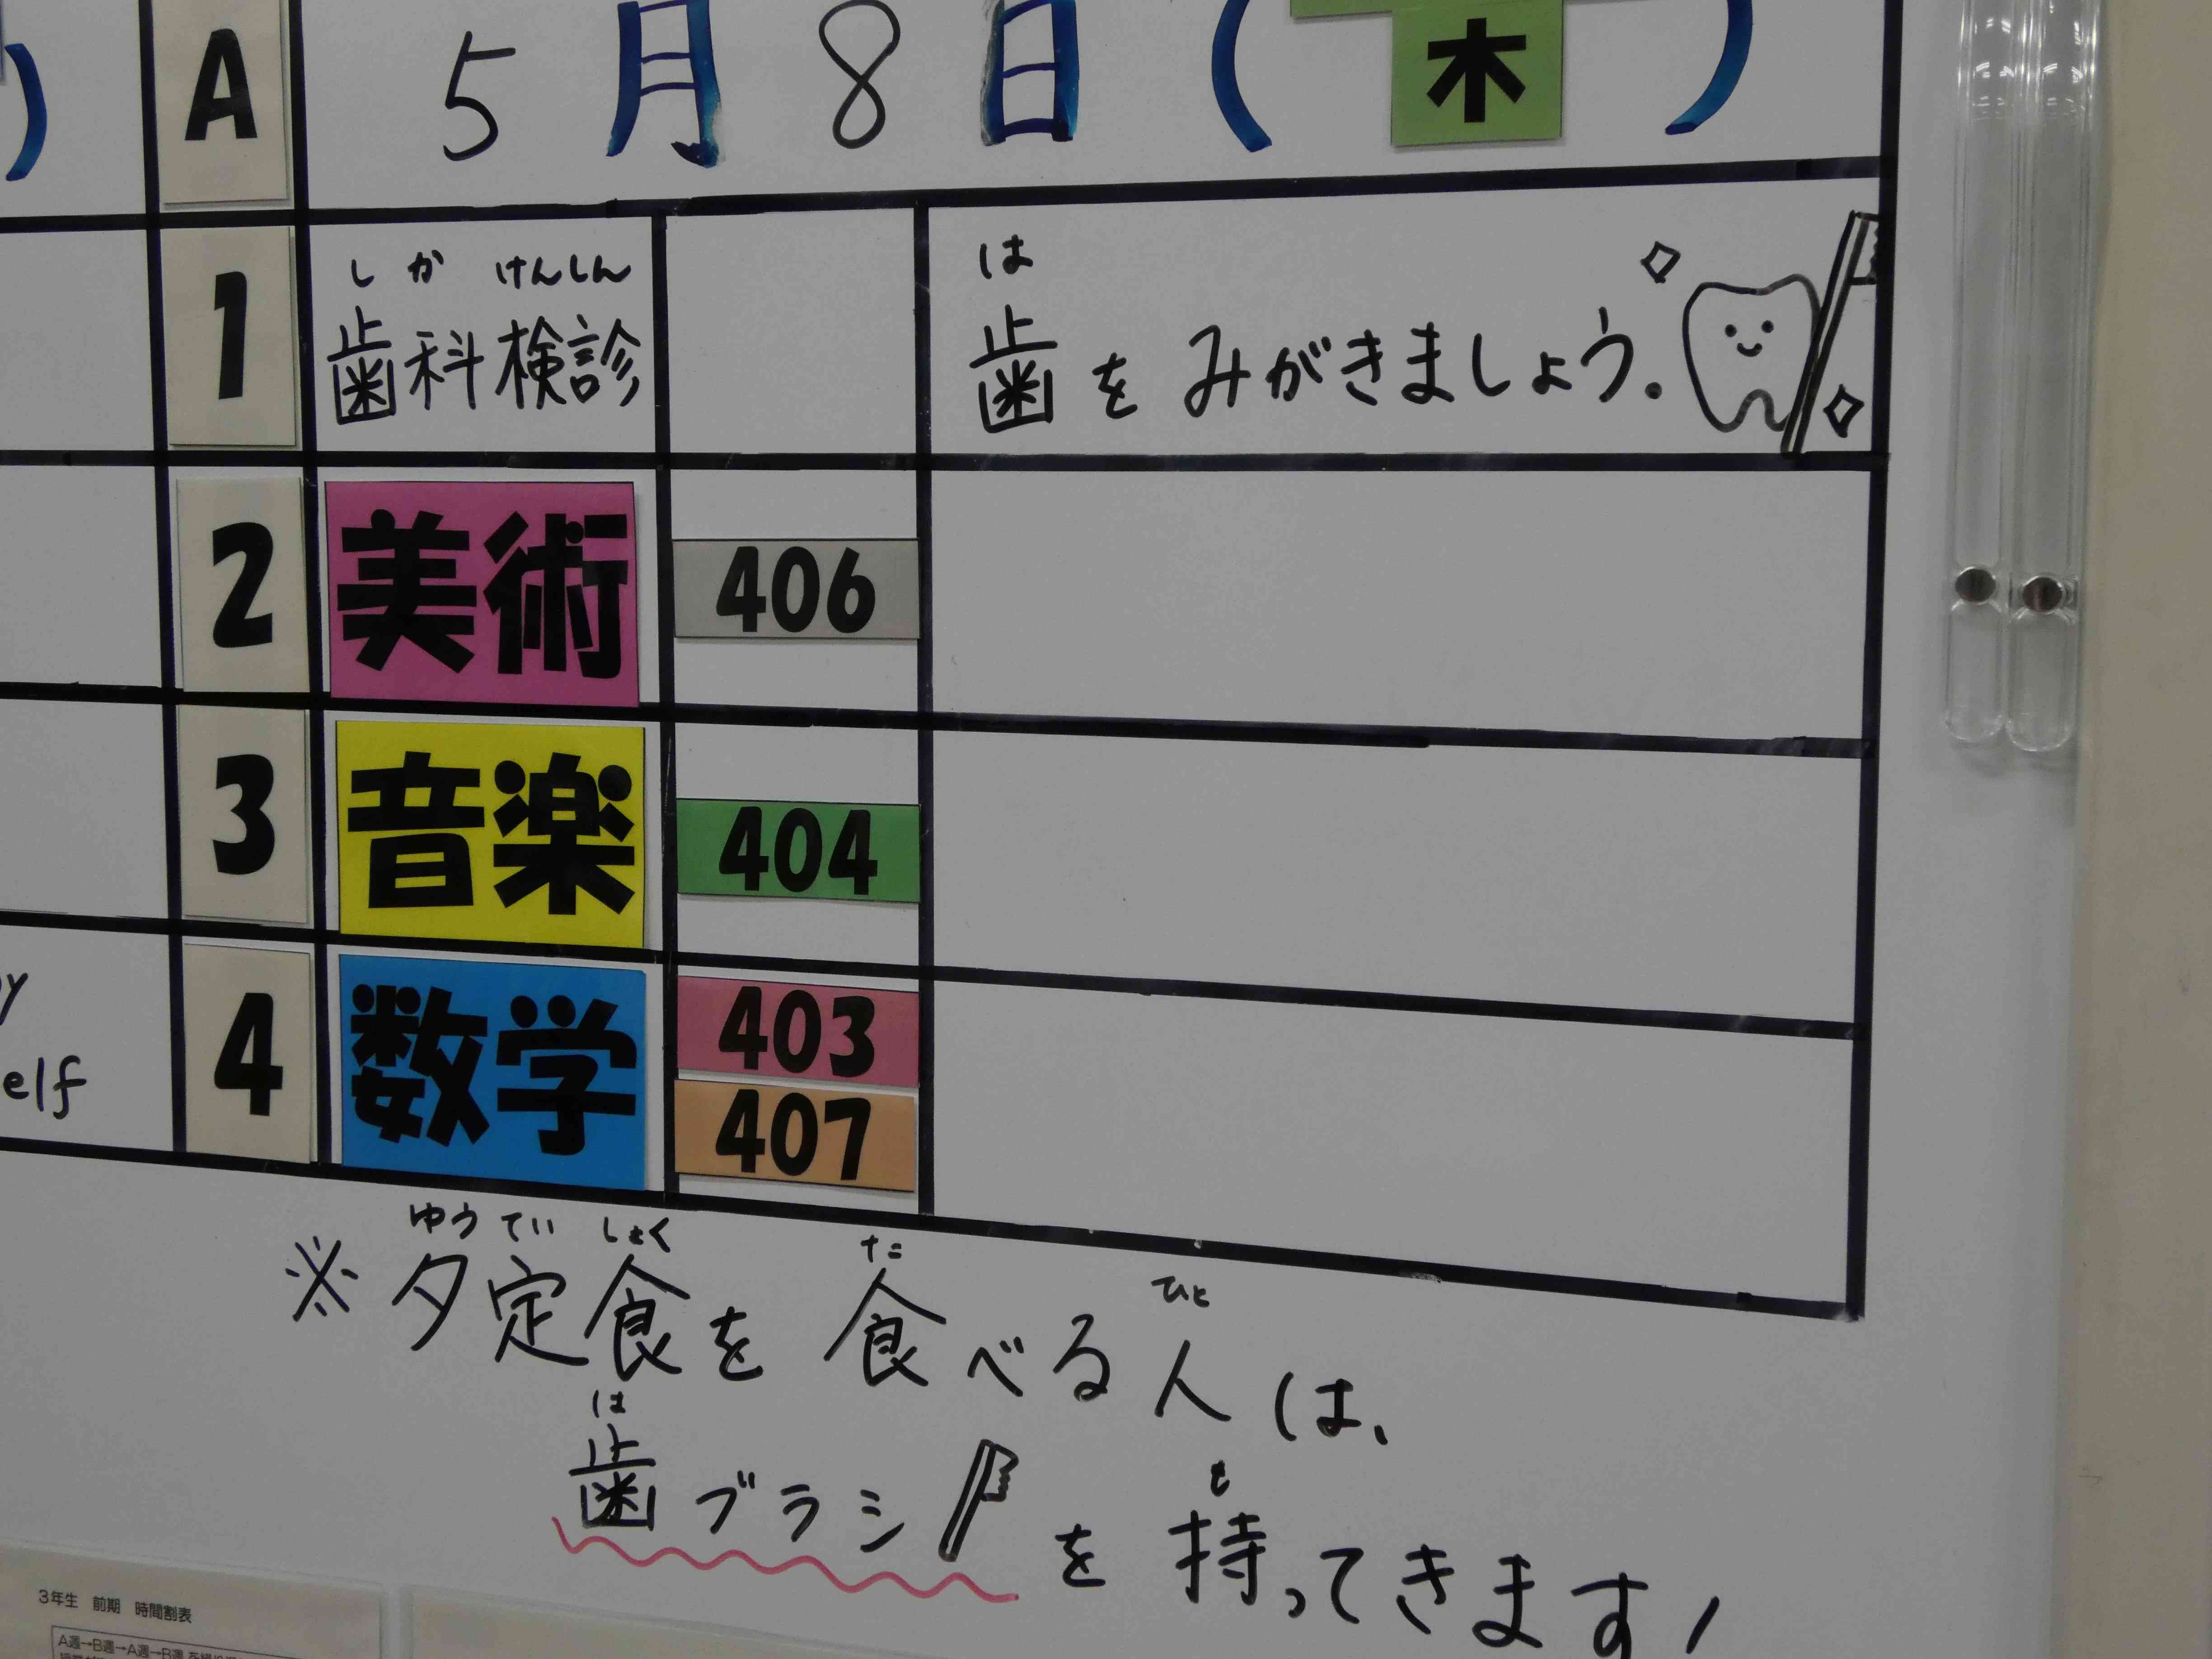 A 5月8日(木)
しかけんしん は
1 歯科検診 歯をみがきましょう.
2 美術 406
3 音楽 404
4 数学 403
407
elf
ゆうていしょく た ひと
※夕定食を食べる人は、
は も
歯ブラシを持ってきます!
3年生 前期 時間割表
A週→B週→A週→B週